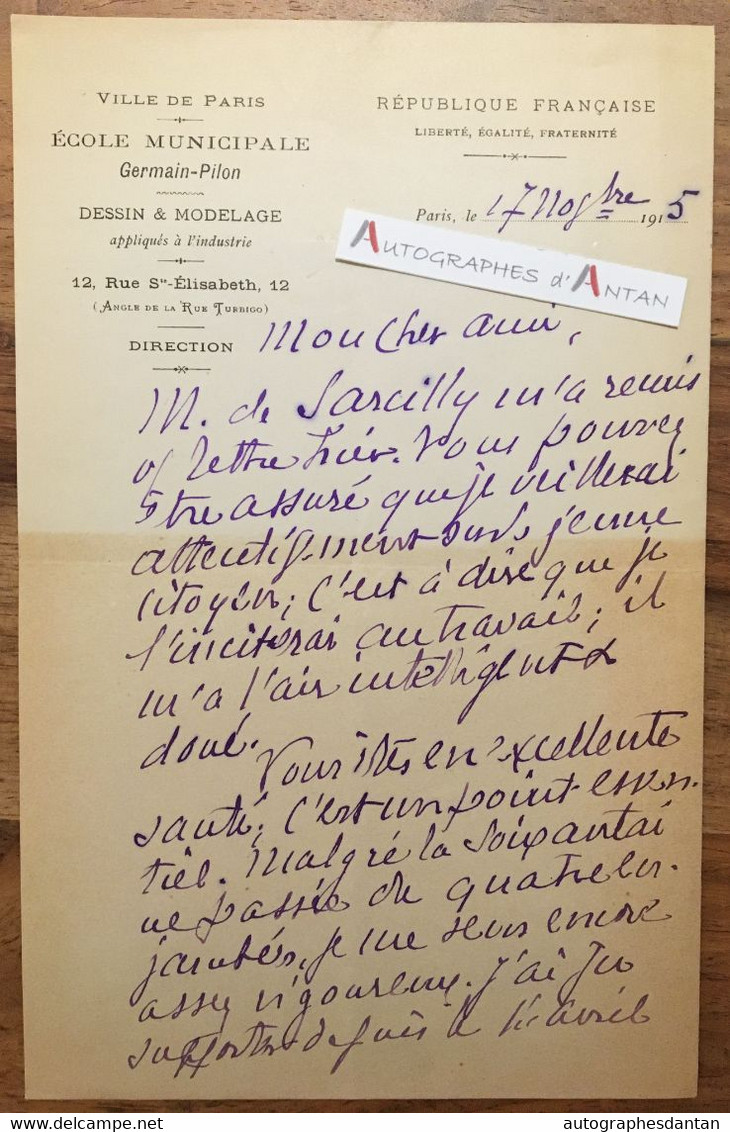 VILLE DE PARIS
ÉCOLE MUNICIPALE
Germain-Pilon
DESSIN & MODELAGE
appliqués à l'industrie
12, Rue Ste-Élisabeth, 12
(ANGLE DE LA RUE TURBIGO)
DIRECTION
RÉPUBLIQUE FRANÇAISE
LIBERTÉ, ÉGALITÉ, FRATERNITÉ
Paris, le 17 Novbre 1915
AUTOGRAPHES d'ANTAN
Mon cher ami,
M. de Sarcilly m'a remis
v/ lettre hier. Vous pouvez
être assuré que je veillerai
attentivement sur le jeune
citoyen; c'est à dire que je
l'inciterai au travail; il
m'a l'air intelligent &
doué.
Vous êtes en excellente
santé; c'est un point essen-
tiel. Malgré la soixantai
ne passée du quatre en-
jambées, je me sens encore
assez vigoureux. J'ai pu
supporter depuis le 1er avril
delcampe.net
autographesdantan